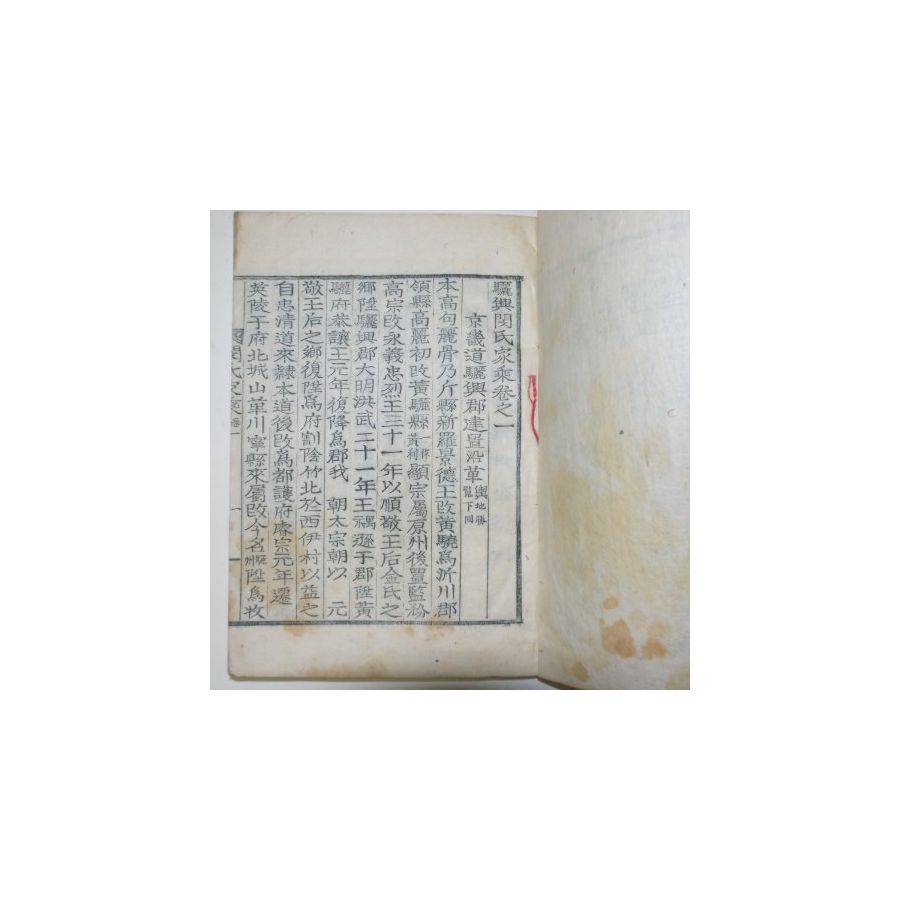 驪興閔氏家乘卷之一
京畿道驪興郡建置沿革 輿地勝覽下同
本高句麗骨乃斤縣新羅景德王改黃驍爲沂川郡
領縣高麗初改黃驪縣 一作黃利 顯宗屬原州後置監務
高宗改永義忠烈王三十一年以順敬王后金氏之
鄉陞驪興郡大明洪武二十一年王禑遜于郡陞黃
驪府恭讓王元年復降爲郡我 朝太宗朝以 元
敬王后之鄉復陞爲府割陰竹北於西伊村以益之
自忠清道來隸本道後改爲都護府睿宗元年遷
英陵于府北城山革川寧縣來屬改今名 驪州 陞爲牧
閔氏家乘 卷一 一